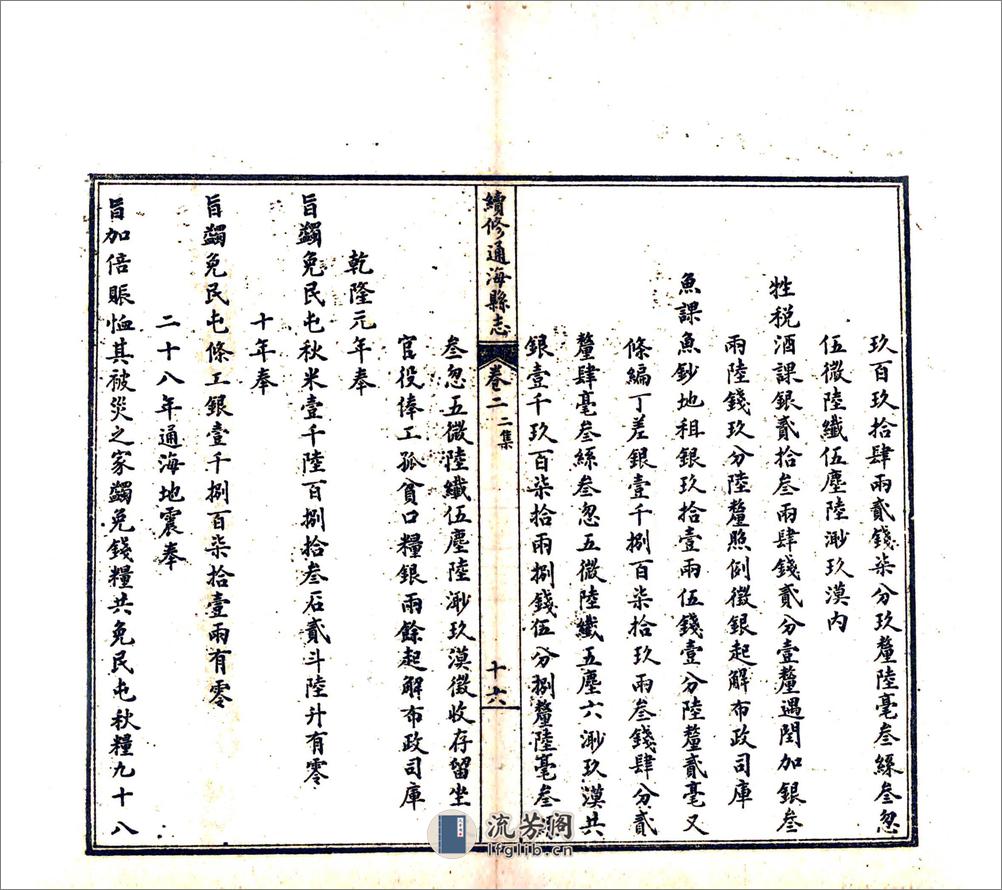 玖百玖拾肆兩貳錢柒分玖釐陸毫叁絲叁忽
伍微陸纖伍塵陸渺玖漠內
牲税酒課銀貳拾叁兩肆錢貳分壹釐遇閏加銀叁
兩陸錢玖分陸釐照例徵銀起解布政司庫
魚課魚鈔地租銀玖拾壹兩伍錢壹分陸釐貳毫又
條編丁差銀壹千捌百柒拾玖兩叁錢肆分貳
釐肆毫叁絲叁忽五微陸纖五塵六渺玖漠共
銀壹千玖百柒拾兩捌錢伍分捌釐陸毫叁
續修通海縣志
卷二 二集
十六
叁忽五微陸纖伍塵陸渺玖漠徵收存留坐
官役俸工孤貧口糧銀兩餘起解布政司庫
乾隆元年奉
旨蠲免民屯秋米壹千陸百捌拾叁石貳斗陸升有零
十年奉
旨蠲免民屯條工銀壹千捌百柒拾壹兩有零
二十八年通海地震奉
旨加倍賑恤其被災之家蠲免錢糧共免民屯秋糧九十八
流芳阁
lfglib.cn